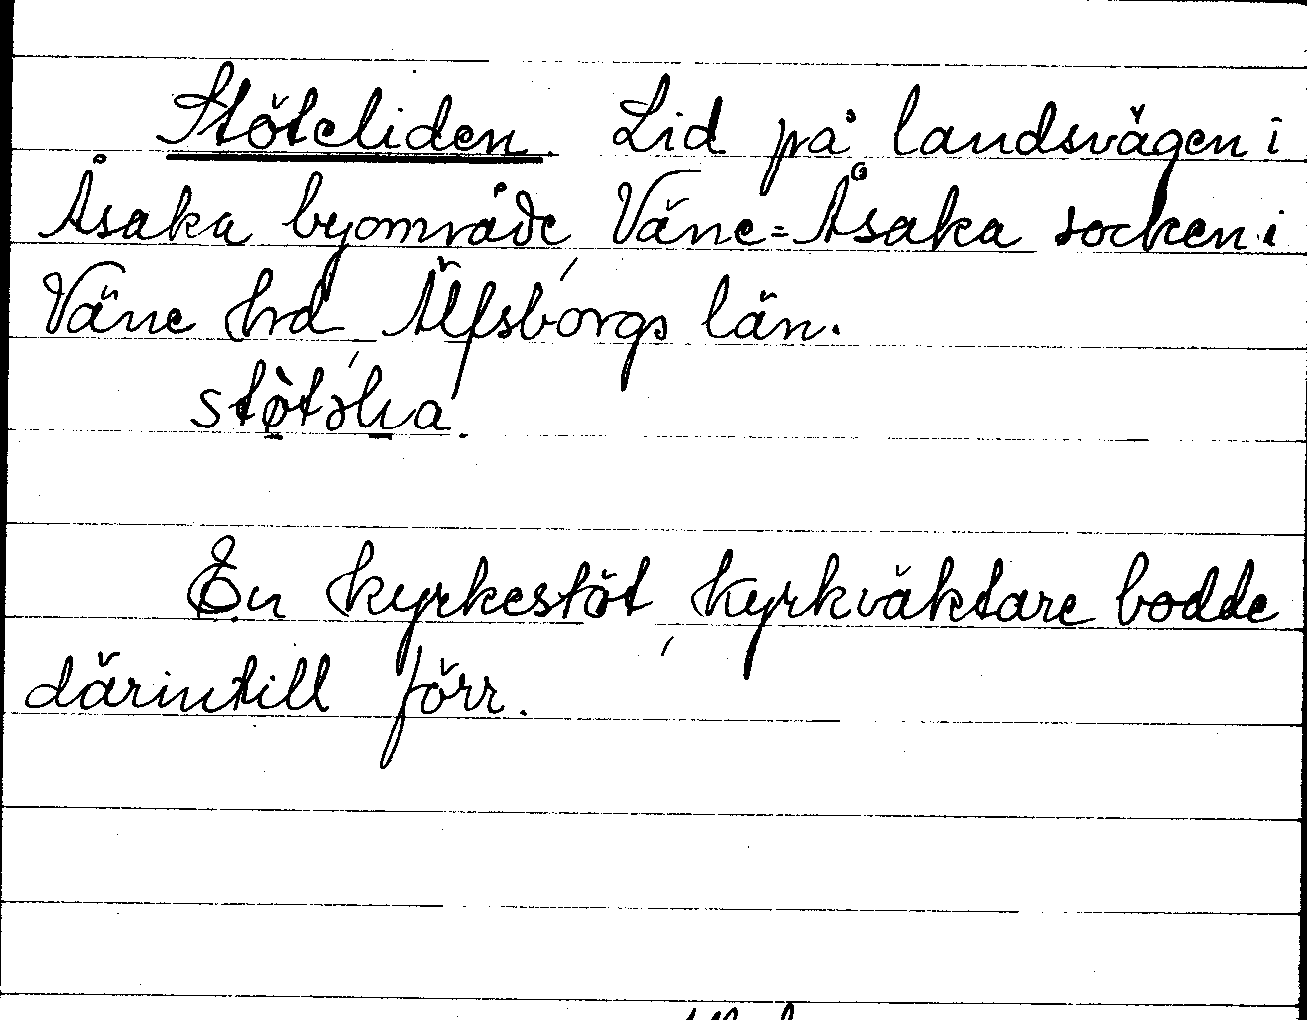 Stöteliden. Lid på landsvägen i
Åsaka byområde, Väne=Åsaka socken i
Väne hrd, Älfsborgs län.
En kyrkestöt, kyrkväktare bodde
därintill förr.